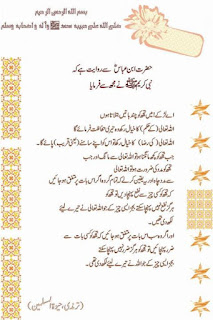 بسم الله الرحمن الرحيم
صلى الله على حبيبه محمد ﷺ وآله واصحابه وسلم
حضرت ابن عباسؓ سے روایت ہے کہ
نبی کریم ﷺ نے مجھ سے فرمایا
اے لڑکے! میں تجھ کو چند باتیں بتلاتا ہوں
اللہ تعالیٰ (کے حکم) کا خیال رکھ وہ تیری حفاظت فرمائے گا
اللہ تعالیٰ (کی رضا) کا خیال رکھ تو اس کو اپنے سامنے (یعنی قریب) پائے گا۔
جب تجھ کو کچھ مانگنا ہو تو اللہ تعالیٰ سے مانگ اور جب
تجھ کو مدد کی ضرورت ہو تو اللہ تعالیٰ
سے مدد چاہ اور یہ یقین کر لے کہ تمام گروہ اگر اس بات پر متفق ہو جائیں کہ
تجھ کو کسی چیز سے نفع پہنچائیں تو تجھ کو
ہرگز نفع نہیں پہنچا سکتے بجز ایسی چیز کے جو اللہ تعالیٰ نے تیرے لیے
لکھ دی تھی۔
اور اگر وہ سب اس بات پر متفق ہو جائیں کہ تجھ کو کسی بات سے
ضرر پہنچائیں تو تجھ کو ہرگز ضرر نہیں پہنچا سکتے
بجز ایسی چیز کے جو اللہ تعالیٰ نے تیرے لیے لکھ دی تھی۔
(ترمذی، حیوٰۃ المسلمین)